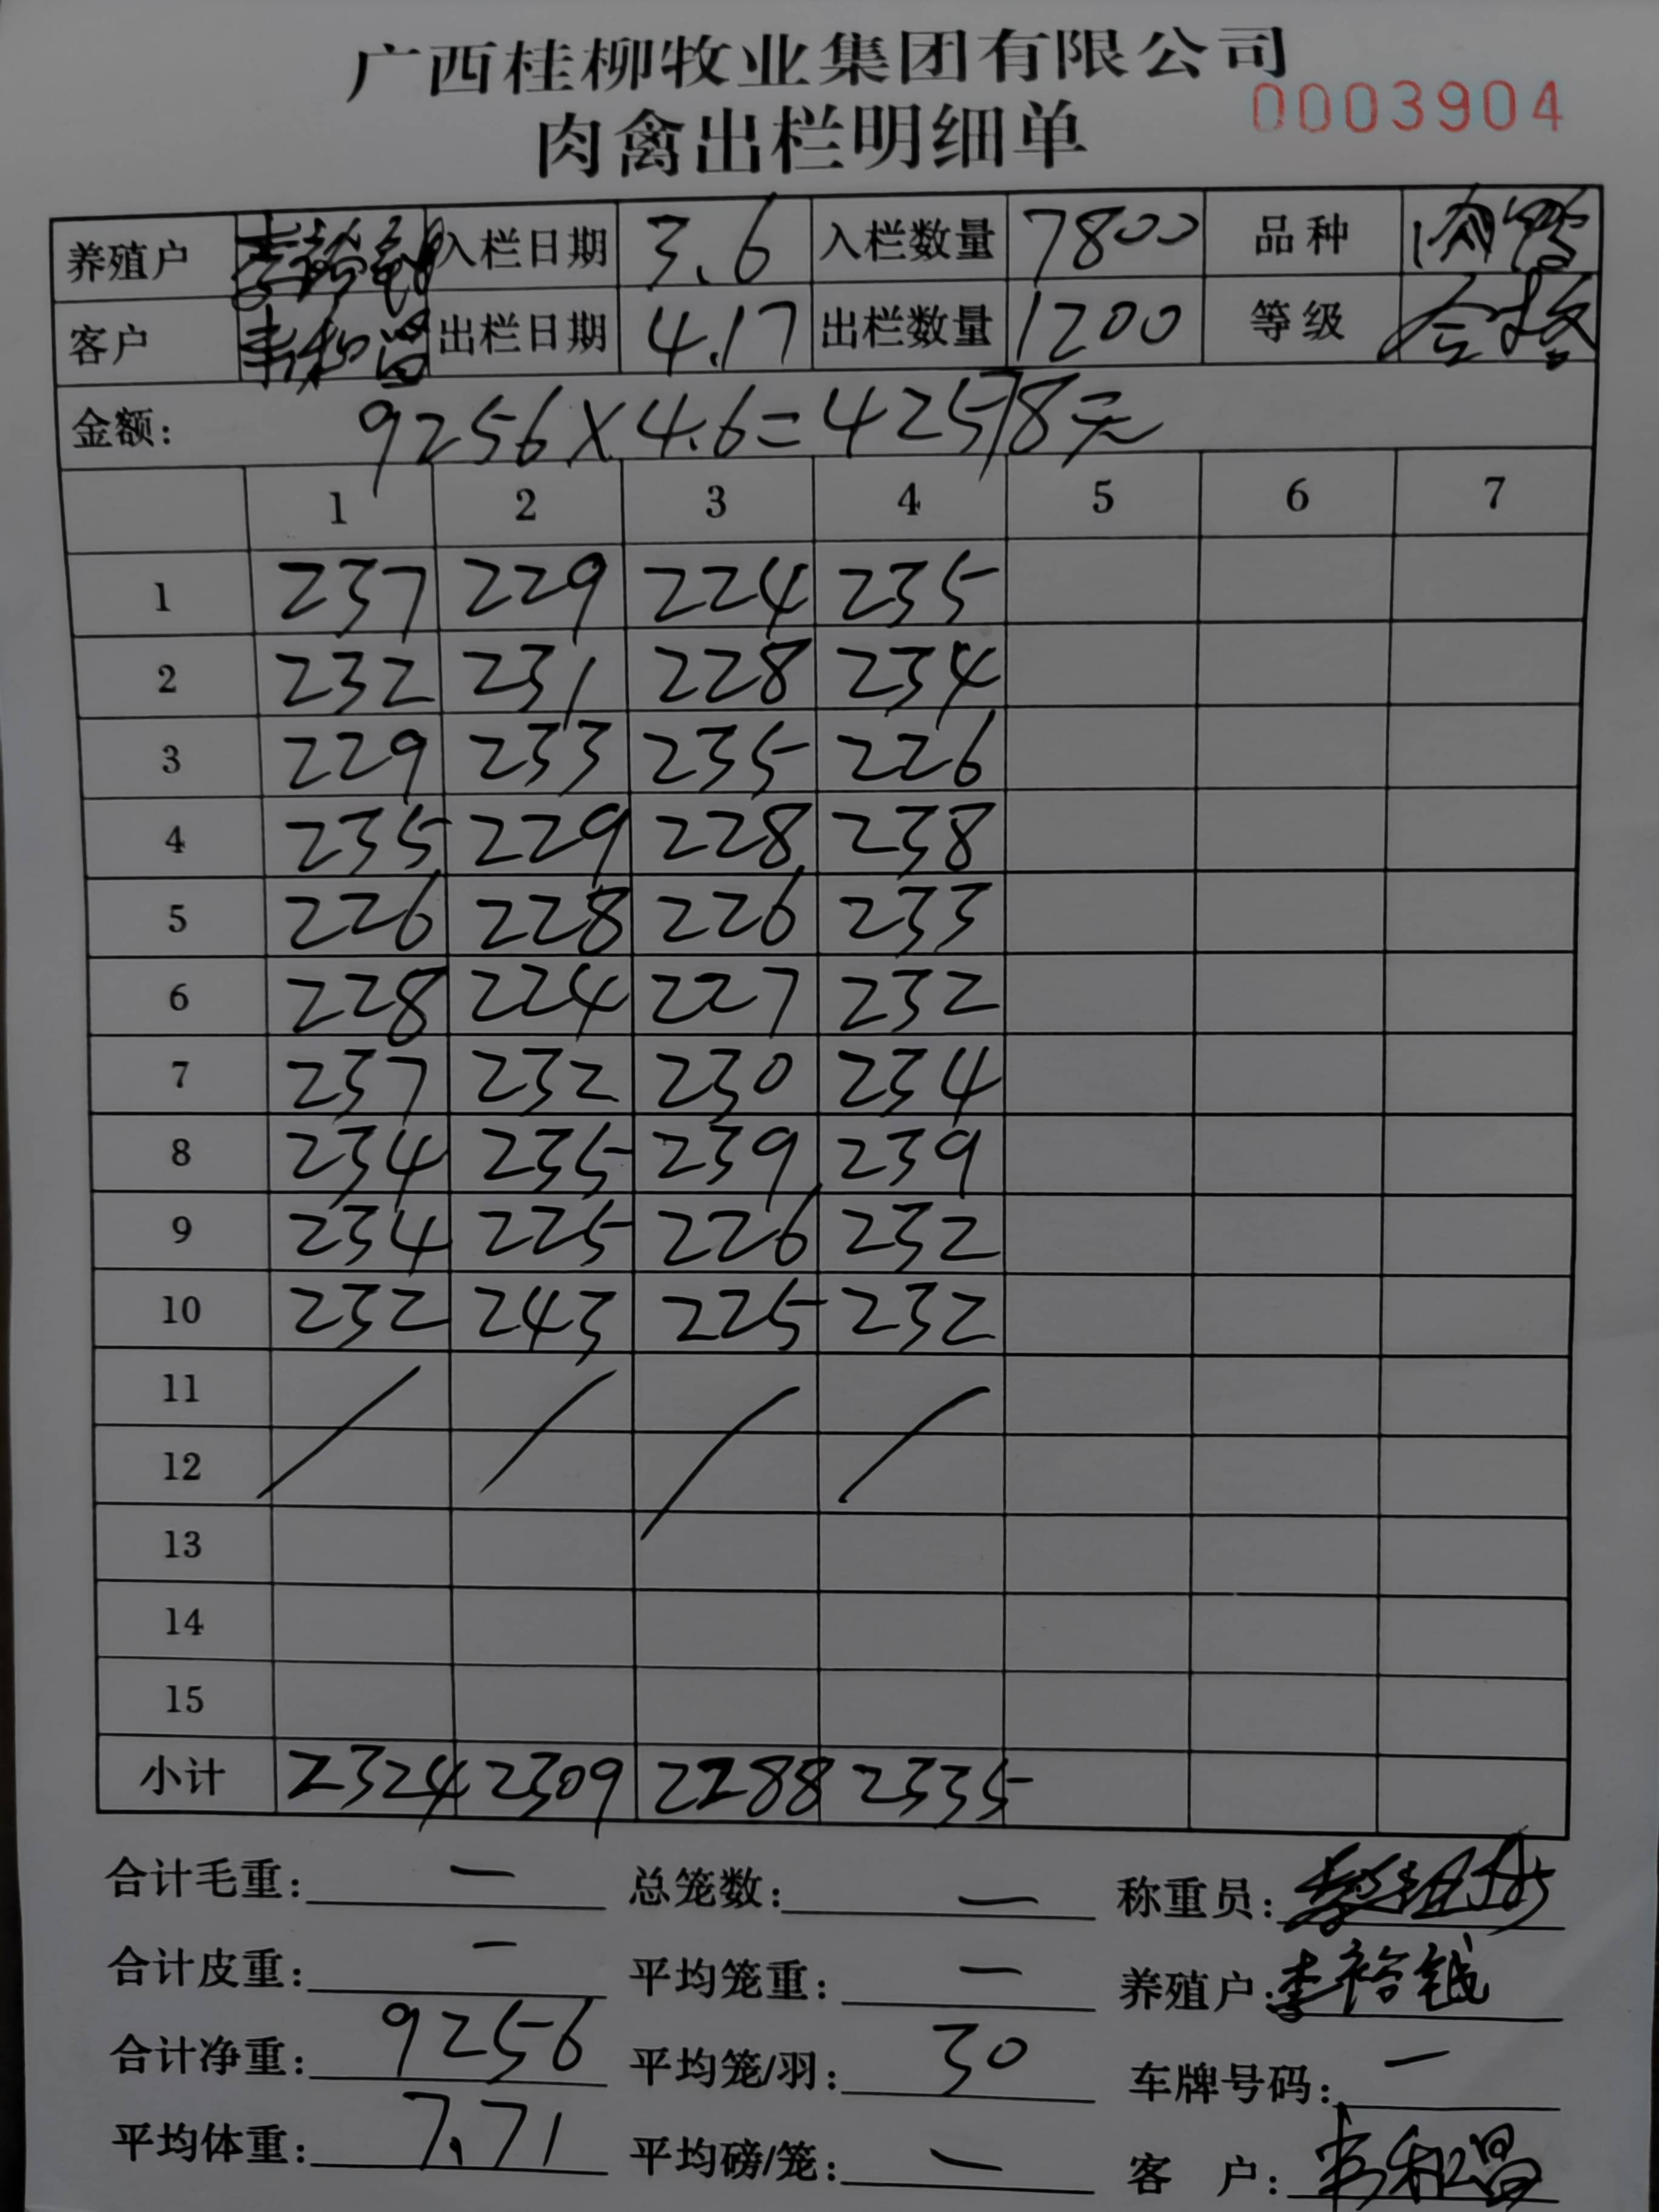 广西桂柳牧业集团有限公司
0003904
肉禽出栏明细单
养殖户 李裕钱 入栏日期 3.6 入栏数量 7800 品种 肉鸭
客户 出栏日期 4.17 出栏数量 1200 等级 合格
金额: 9256×4.6=42578元
1 2 3 4 5 6 7
1 237 229 224 235
2 232 231 228 234
3 229 233 235 226
4 235 229 228 238
5 226 228 226 233
6 228 224 227 232
7 237 232 230 234
8 234 235 239 239
9 234 225 226 232
10 232 243 225 232
11 / / / /
12
13
14
15
小计 2324 2309 2288 2335
合计毛重: — 总笼数: — 称重员:
合计皮重: — 平均笼重: — 养殖户: 李裕钱
合计净重: 9256 平均笼/羽: 30 车牌号码: —
平均体重: 7.71 平均磅/笼: — 客 户: